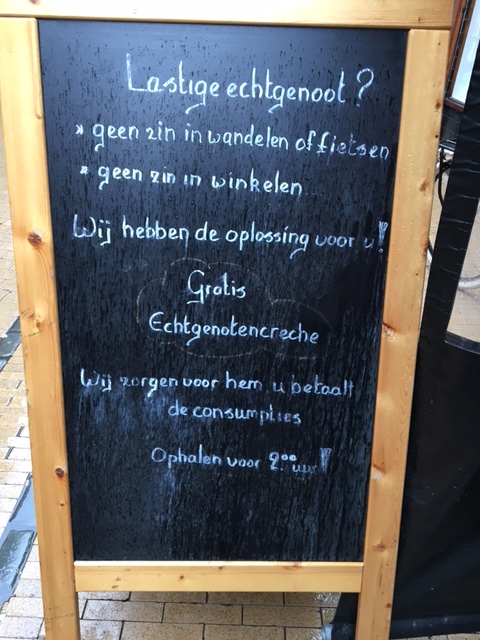 Lastige echtgenoot?
* geen zin in wandelen of fietsen
* geen zin in winkelen
Wij hebben de oplossing voor u!
Gratis
Echtgenotencreche
Wij zorgen voor hem, u betaalt
de consumpties
Ophalen voor 2.00 uur!